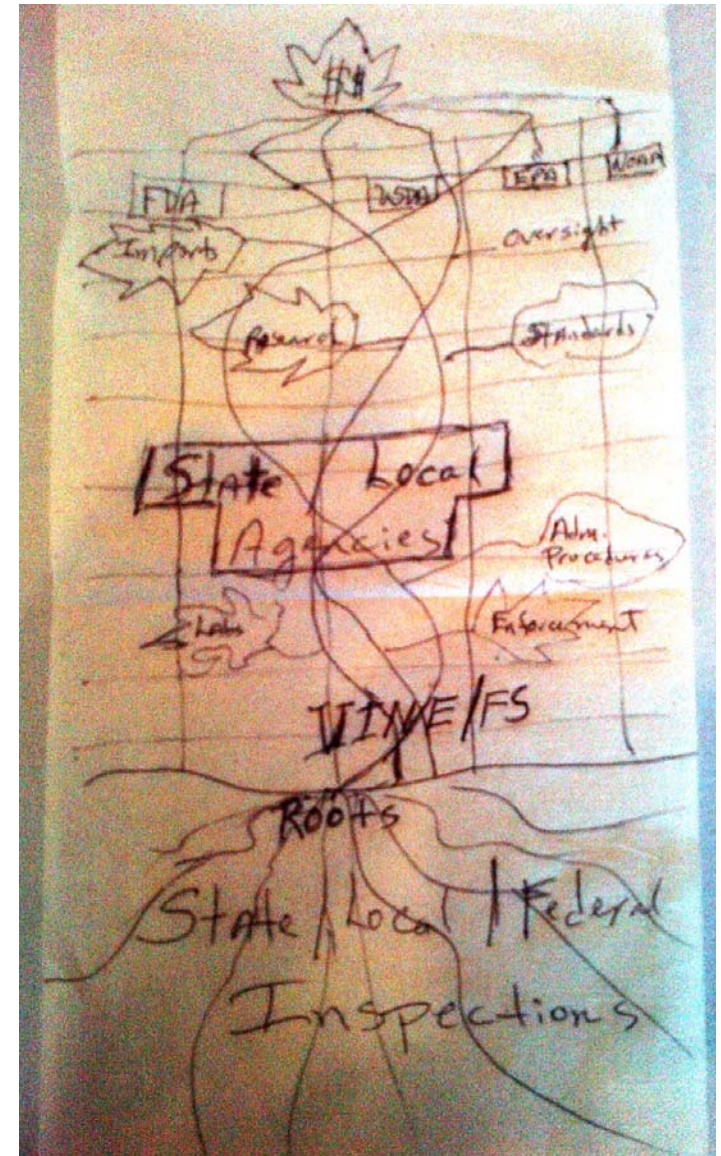 $$
FDA
USDA
EPA
NOAA
Imports
oversight
Research
Standards
State Local
Agencies
Adm.
Procedures
Labs
Enforcement
VINE/FS
Roots
State / Local / Federal
Inspections